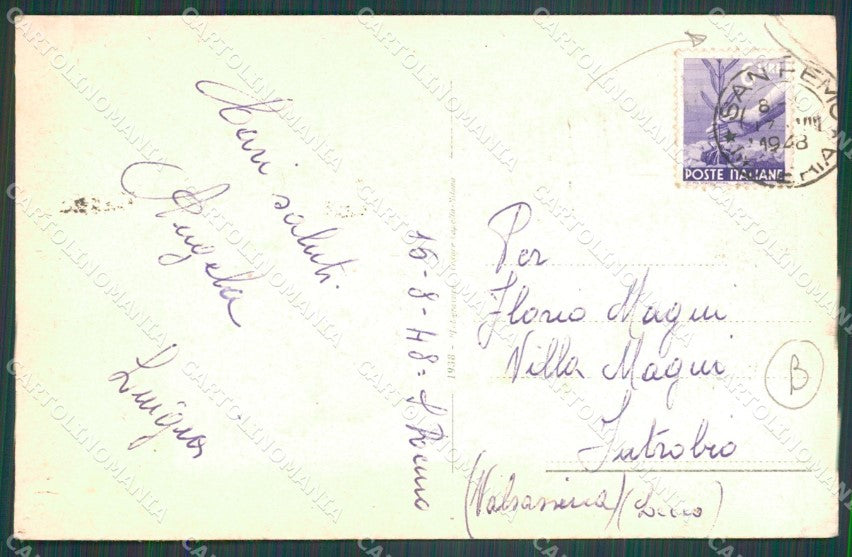 Cari saluti
Angela
Luigia
16-8-48= S Rocco
1938 -
POSTE ITALIANE
SAN FEMO
8
VIII
1948
Per
Florio Magni
Villa Magni
Introbio
(Valsassina) (Lecco)
B
CARTOLINOMANIA